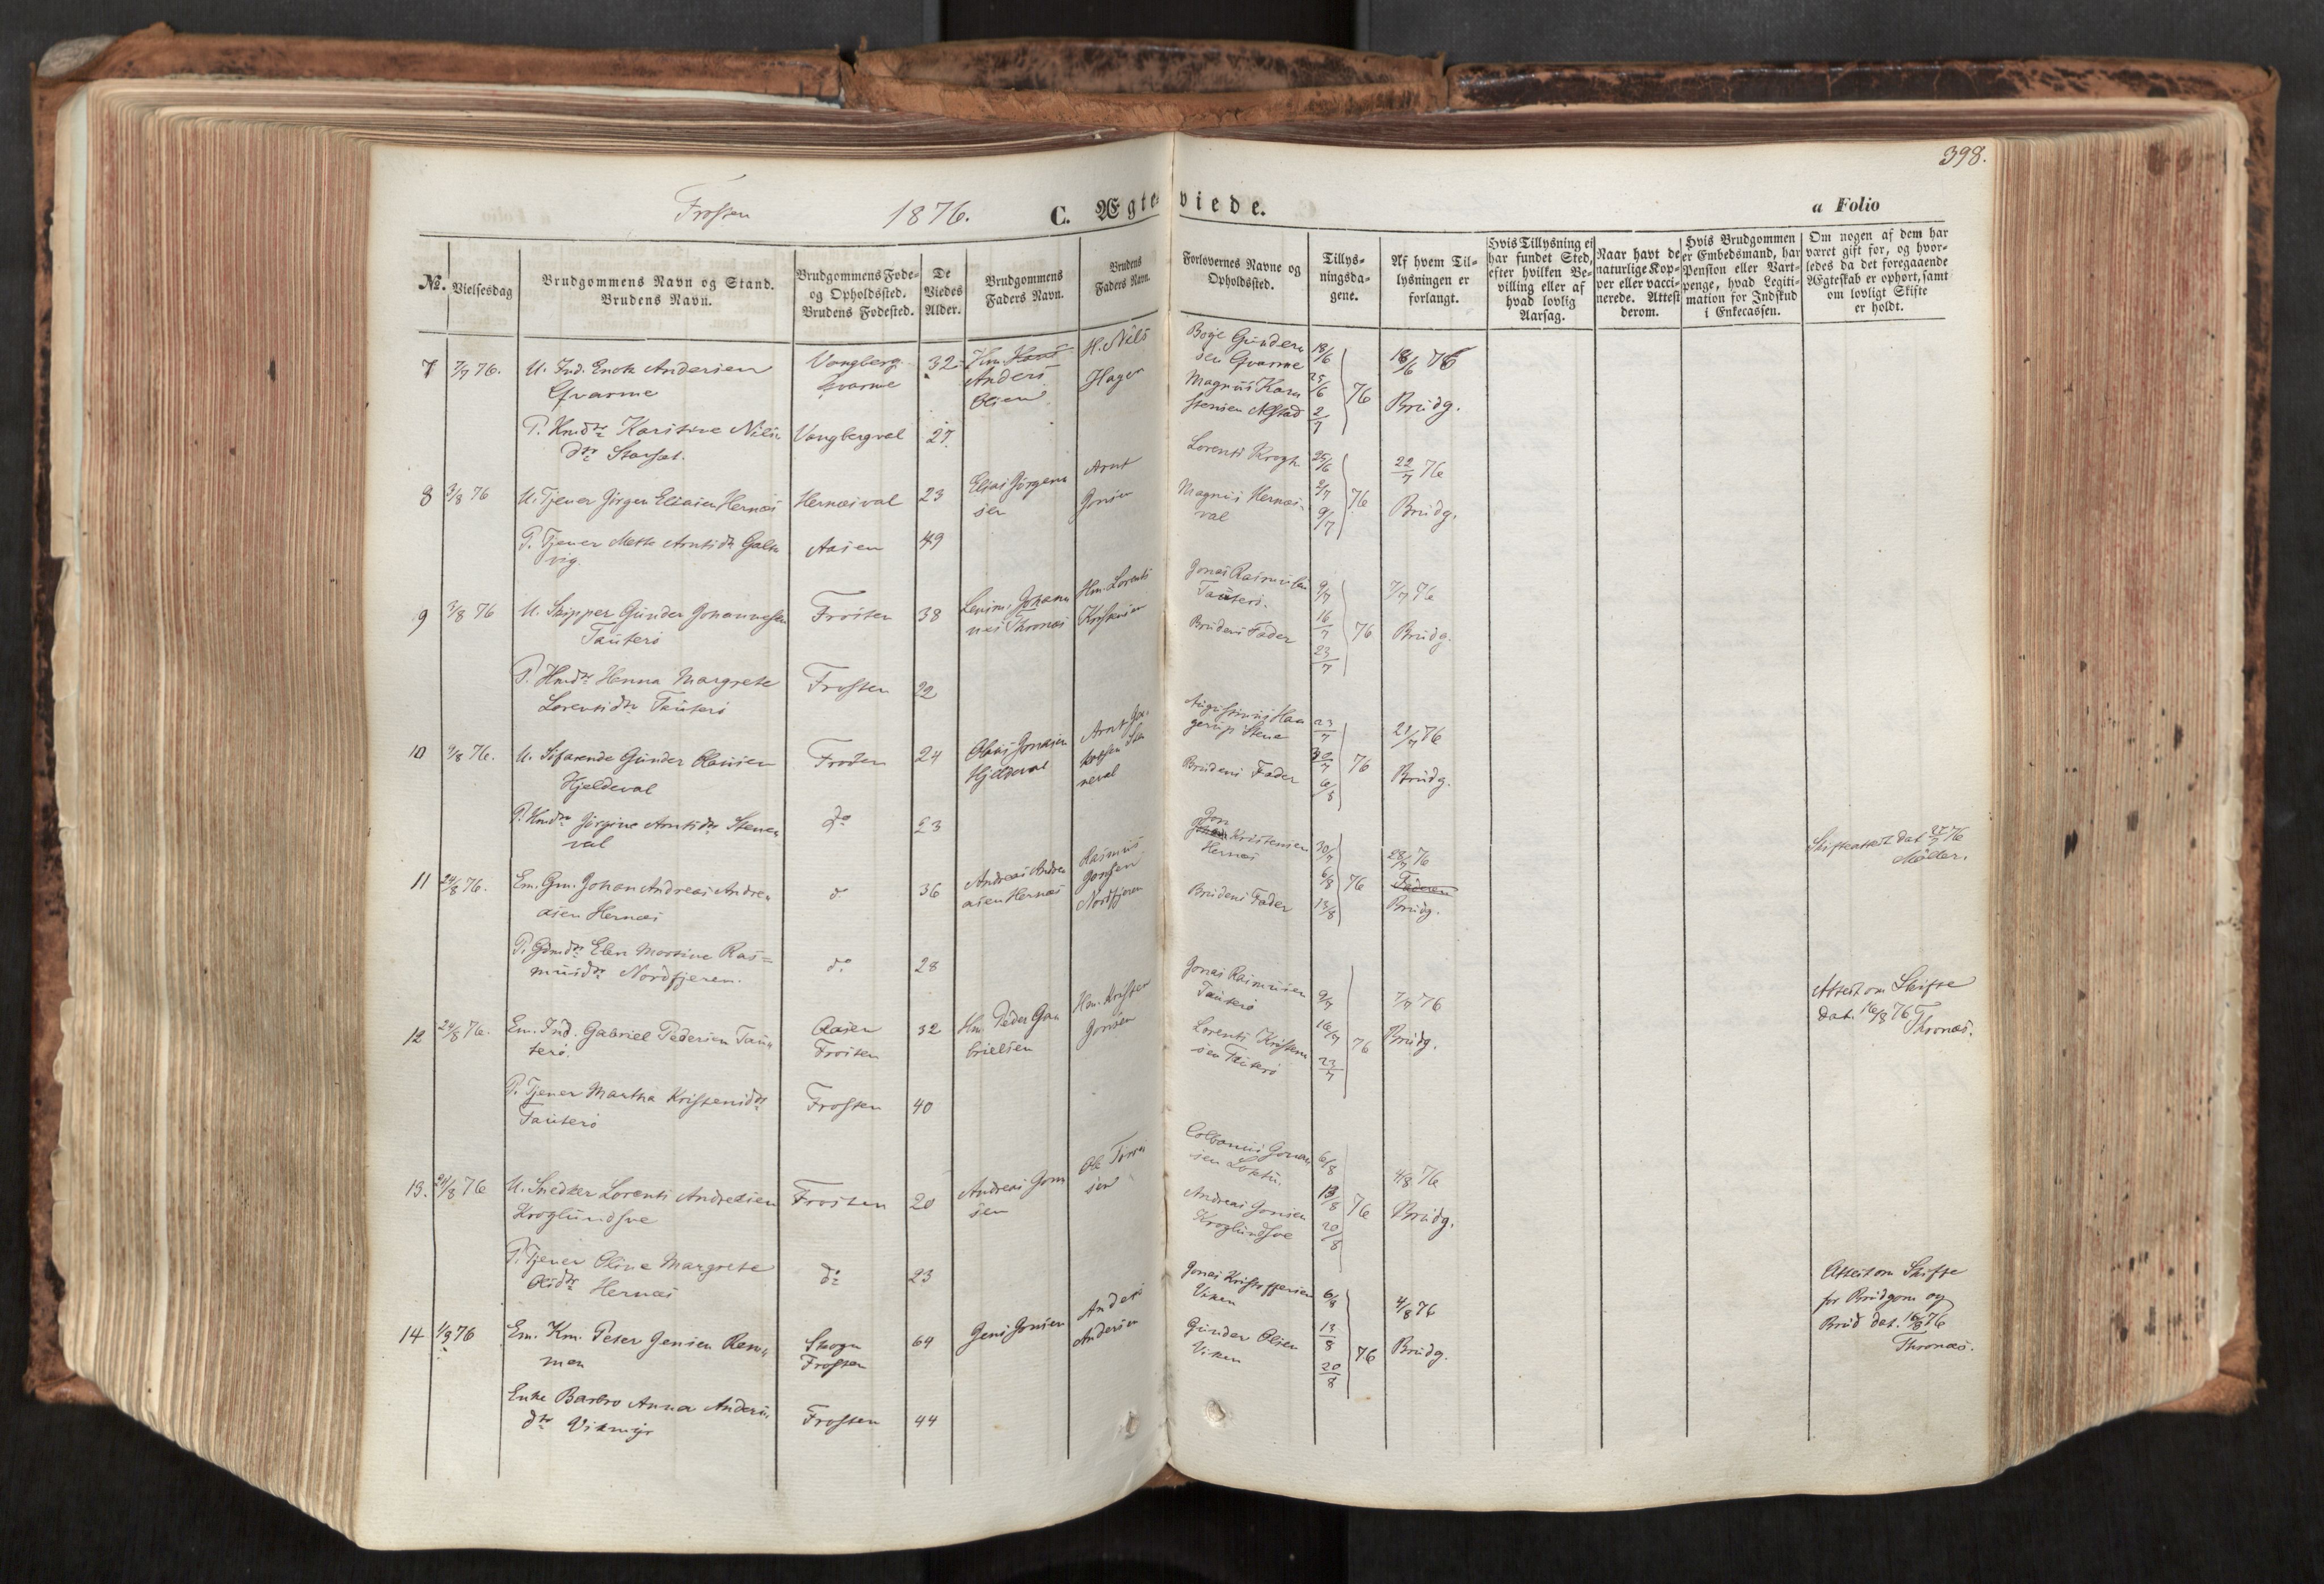 398.
Frosten 1876. C. Ægteviede. a Folio
No. Vielsesdag
Brudgommens Navn og Stand.
Brudens Navn.
Brudgommens Føde-
og Opholdssted.
Brudens Fødested.
De
Viedes
Alder.
Brudgommens
Faders Navn.
Brudens
Faders Navn.
Forlovernes Navne og
Opholdssted.
Tillys-
ningsda-
gene.
Af hvem Til-
lysningen er
forlangt.
Hvis Tillysning ei
har fundet Sted,
efter hvilken Be-
villing eller af
hvad lovlig
Aarsag.
Naar havt de
naturlige Kop-
per eller vacci-
nerede. Attest
derom.
Hvis Brudgommen
er Embedsmand, har
Pension eller Vart-
penge, hvad Legiti-
mation for Indskud
i Enkecassen.
Om nogen af dem har
været gift før, og hvor-
ledes da det foregaaende
Ægteskab er ophørt, samt
om lovligt Skifte
er holdt.
7 7/7 76. U. Ind. Enok Andersen
Qvarme
Vangberg
Qvarme
32
Anders
Olsen
H. Nils
Hagen
Boye Gunder
sen Qvarme
Magnus Karn
stensen Alstad
18/6
25/6
2/7
76
18/6 76
Brudg.
P. Hmdtr Karistine Nils
dtr
Vangbergval 27.
8 3/8 76 U. Tjener Jørgen Eliasen Hernes
Hernesval 23
Elias Jørgen
sen
Arnt
Jonsen
Lorents Krogh
Magnus Hernes
val
25/6
2/7
9/7
76
22/7 76
Brudg.
P. Tjener Mette Arntsdtr Galt
vig.
Aasen 49
9 3/8 76 U. Skipper Gunder Johannesen
Tauterø
Frosten 38
Johann
nes Thronæs
Hm. Lorents
Kristensen
Jonas Rasmusen
Tauterø.
Brudens Fader
9/7
16/7
23/7
76
7/7 76
Brudg.
P. Hmdtr Hanna Margrete
Lorentsdtr Tauterø
Frosten 22
10 8 76. U. Søfarende Gunder Olausen
Hjeldeval
Frosten 24
Olaus Jonasen
Hjeldeval
Arnt
neval
Augustinus Haa
gerup Stene
Brudens Fader
23/7
30/7
6/8
76
21/7 76
Brudg.
P. Hmdtr Jørgine Arntsdtr Stene
val
do 23
11 24/8 76. Em. Gm. Johan Andreas Andre
asen Hernes
do 36
Andreas Andre
asen Hernes
Rasmus
Jonsen
Nordfjæren
Jon
Kristensen
Hernes
Brudens Fader
30/7
6/8
13/8
76
28/7 76
Faderen
Brudg.
Skifteattest dat. 27/7 76
Møller.
P. Gdmdtr Elen Martine Ras=
musdtr Nordfjæren.
do 28
12 24/8 76. Em. Ind. Gabriel Pedersen Tau
terø.
Aasen
Frosten
32
Hm. Peder Ga
brielsen
Hm. Kristen
Jonsen
Jonas Rasmusen
Tauterø
Lorents Kristen
sen Tauterø
9/7
16/7
23/7
76
7/7 76
Brudg.
Attest om Skifte
dat. 16/8 76
Thronæs.
P. Tjener Martha Kristensdtr
Tauterø
Frosten 40
13. 24/8 76 U. Snedker Lorents Andreasen
Kroglundsve
Frosten 20
Andreas Jon
sen
Ole
sen
Colbanus Jonas
sen
Andreas Jonsen
Kroglundsve
6/8
13/8
20/8
76
4/8 76
Brudg.
P. Tjener Oline Margrete
Olsdtr Hernes
do 23
14 1/9 76 Em. Km. Peter Jensen Rem
men
Skogn
Frosten
64
Jens Jensen
Anders
Andersen
Jonas Kristoffersen
Viken
Gunder Olsen
Viken
6/8
13/8
20/8
76
4/8 76
Brudg.
Attest om Skifte
for Brudgom og
Brud dat. 16/8 76
Thronæs.
Enke Barbro Anna Anders
dtr Vikmyr
Frosten 44